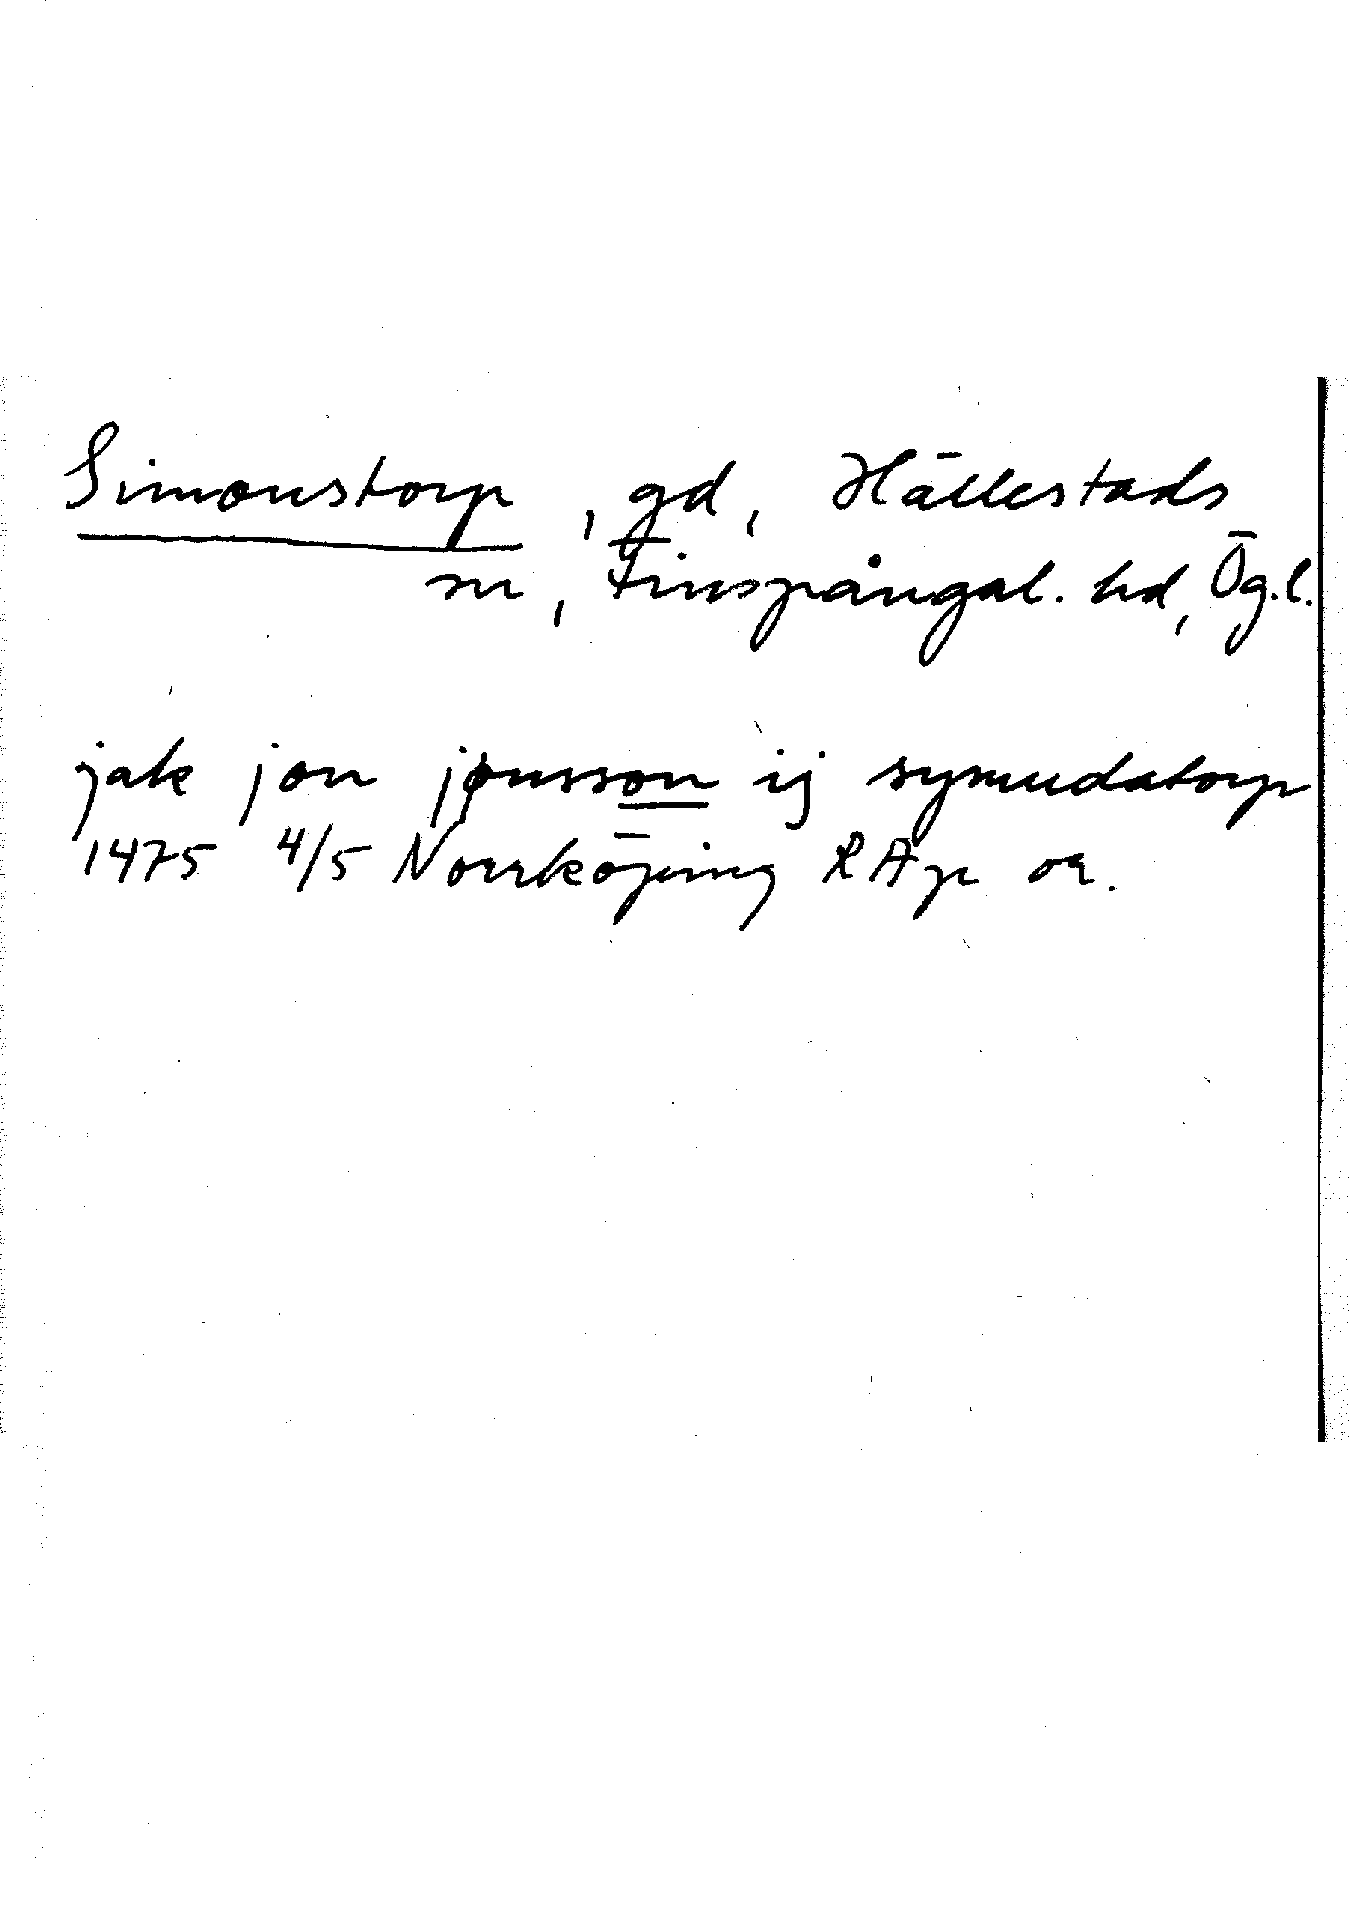 Simonstorp, gd, Hällestads
sn, Finspångal. hd, Ög.l.
jak jon jonsson ij symudatorp
1475 4/5 Norrköping RAp or.